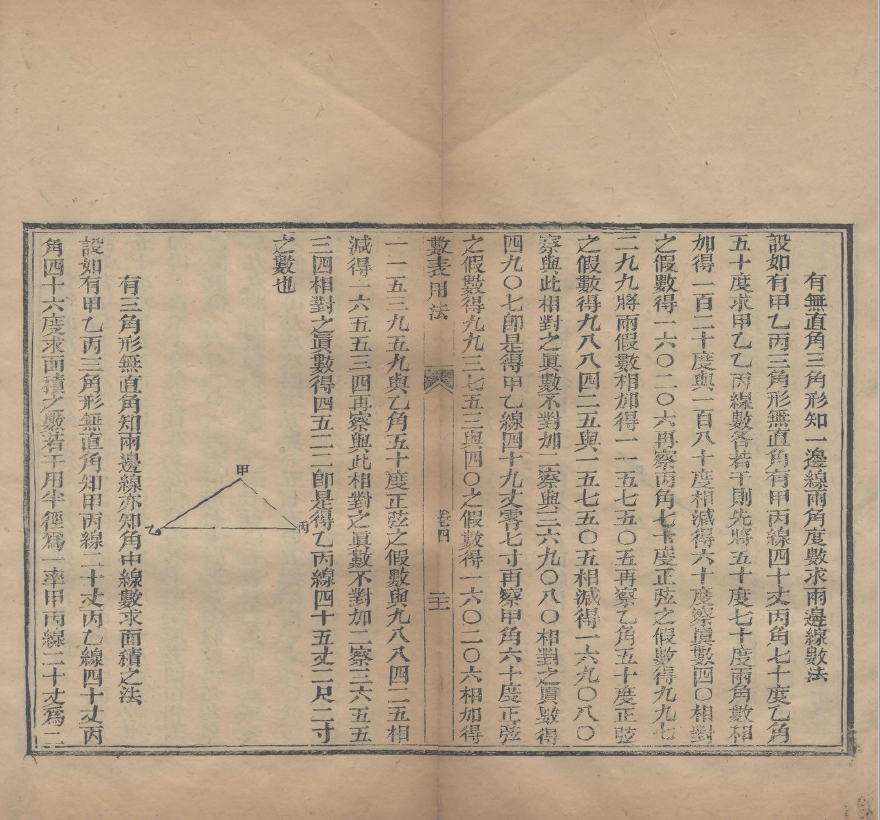 有無直角三角形知一邊線兩角度數求兩邊線數法
設如有甲乙丙三角形無直角有甲丙線四十丈丙角七十度乙角
五十度求甲乙乙丙線數各若干則先將五十度七十度兩角數相
加得一百二十度與一百八十度相減得六十度察眞數四〇相對
之假數得一六〇二〇六再察丙角七十度正弦之假數得九九七
二九九將兩假數相加得一一五七五〇五再察乙角五十度正弦
之假數得九八八四二五與一一五七五〇五相減得一六九〇八〇
察與此相對之眞數不對加二察與三六九〇八〇相對之眞數得
四九〇七卽是得甲乙線四十九丈零七寸再察甲角六十度正弦
之假數得九九三七五三與四〇之假數得一六〇二〇六相加得
數表用法
卷四
一一五三九五九與乙角五十度正弦之假數與九八八四二五相
減得一六五五三四再察與此相對之眞數不對加二察三六五五
三四相對之眞數得四五二二卽是得乙丙線四十五丈二尺二寸
之數也
甲
乙
丙
有三角形無直角知兩邊線亦知角中線數求面積之法
設如有甲乙丙三角形無直角知甲丙線二十丈丙乙線四十丈丙
角四十六度求面積之數若干用半徑爲一率甲丙線二十丈爲二